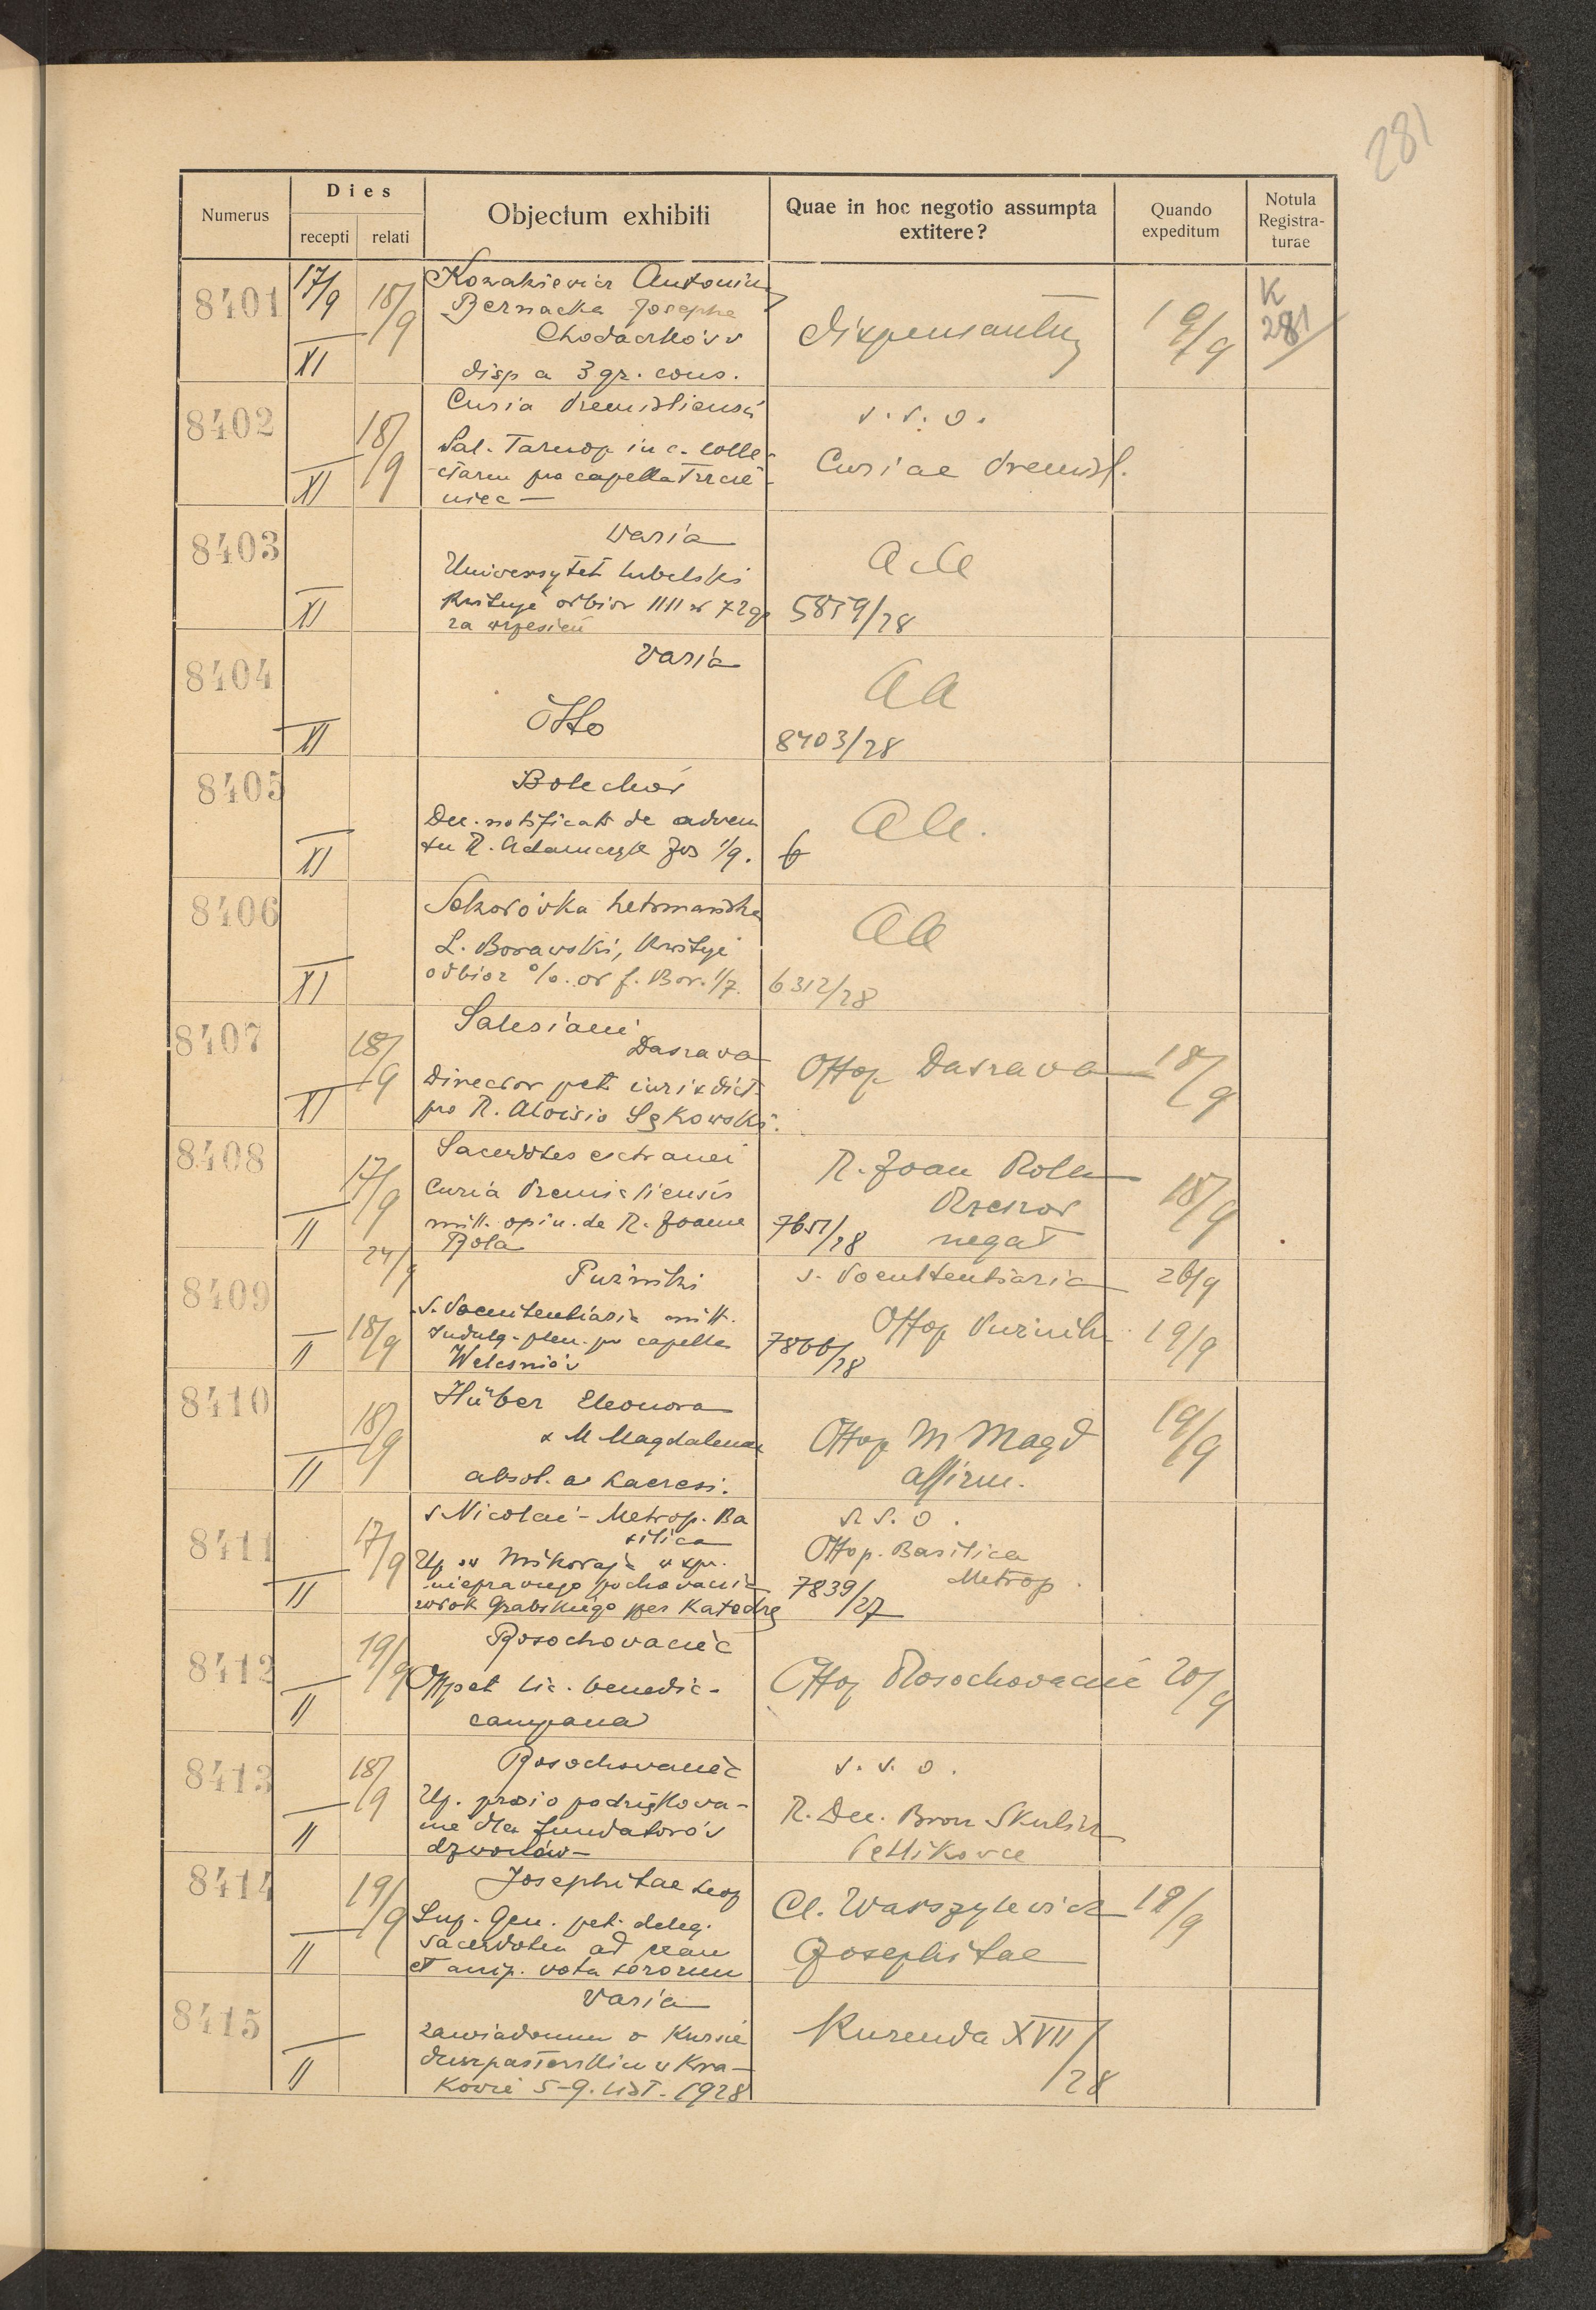 281
Numerus
Dies
recepti relati
Objectum exhibiti
Quae in hoc negotio assumpta
extitere?
Quando
expeditum
Notula
Registra-
turae
8401
17/9
XI
18/9
Antonius
Josepha
disp a 3 gr. cons.
Dispensantur
19/9
K
281
8402
XI
18/9
Curia Premisliensis
ctarum pro capella
niec —
r. r. o.
Curiae Premisl.
8403
XI
Varia
Uniwersytet Lubelski
kwituje odbior 1111 zł 72 gr
za wrzesień
aa
5859/28
8404
XI
Varia
Otto
aa
8403/28
8405
XI
Bolechów
Dec. notificat de adven
tu R. Adamczyk Jos 1/9.
aa.
8406
XI
Sokorówka hetmańska
L. Borawski, kwituje
odbior % od f. Bor. 1/7.
aa
6312/28
8407
XI
18/9
Salesiani
Daszava
Director pet. iurisdict.
pro R. Aloisio
Offop Daszava
18/9
8408
II
17/9
Sacerdotes extranei
Curia Premisliensis
mitt. opin. de R. Joanne
Rola
R. Joan Rola
Rzeszov
negat
7651/28
18/9
8409
II
24/9
18/9
Puźniki
S. Poenitentiaria mitt.
Indulg. plen. pro capella
Weleśniów
S. Poenitentiaria
Offop Puźniki
7866/28
26/9
19/9
8410
II
18/9
Hüber Eleonora
s M Magdalenae
absol. a haeresi.
Offop M Magd
affirm.
19/9
8411
II
17/9
S Nicolai - Metrop. Ba
silica
Up św Mikołaja w spr.
niepravnego pochovania
zwłok Grabskiego przez Katedrę
r. r. o.
Offop. Basilica
Metrop.
7839/27
8412
II
19/9
Rosochovaciec
Off pet lic. benedic-
campana
Offop Rosochovaciec
20/9
8413
II
18/9
Rosochovaciec
Up. prosi o podziękowa-
nie dla fundatorów
dzwonów —
r. r. o.
R. Dec. Bron
Petlikovce
8414
II
19/9
Josephitae Leop
Sup. Gen. pet. deleg.
sacerdotem ad
vota sororum
Cl.
Josephitae
19/9
8415
II
Varia
zawiadomien o kursie
duszpasterskim w Kra-
kovie 5-9. List. 1928
Kurenda XVII/28